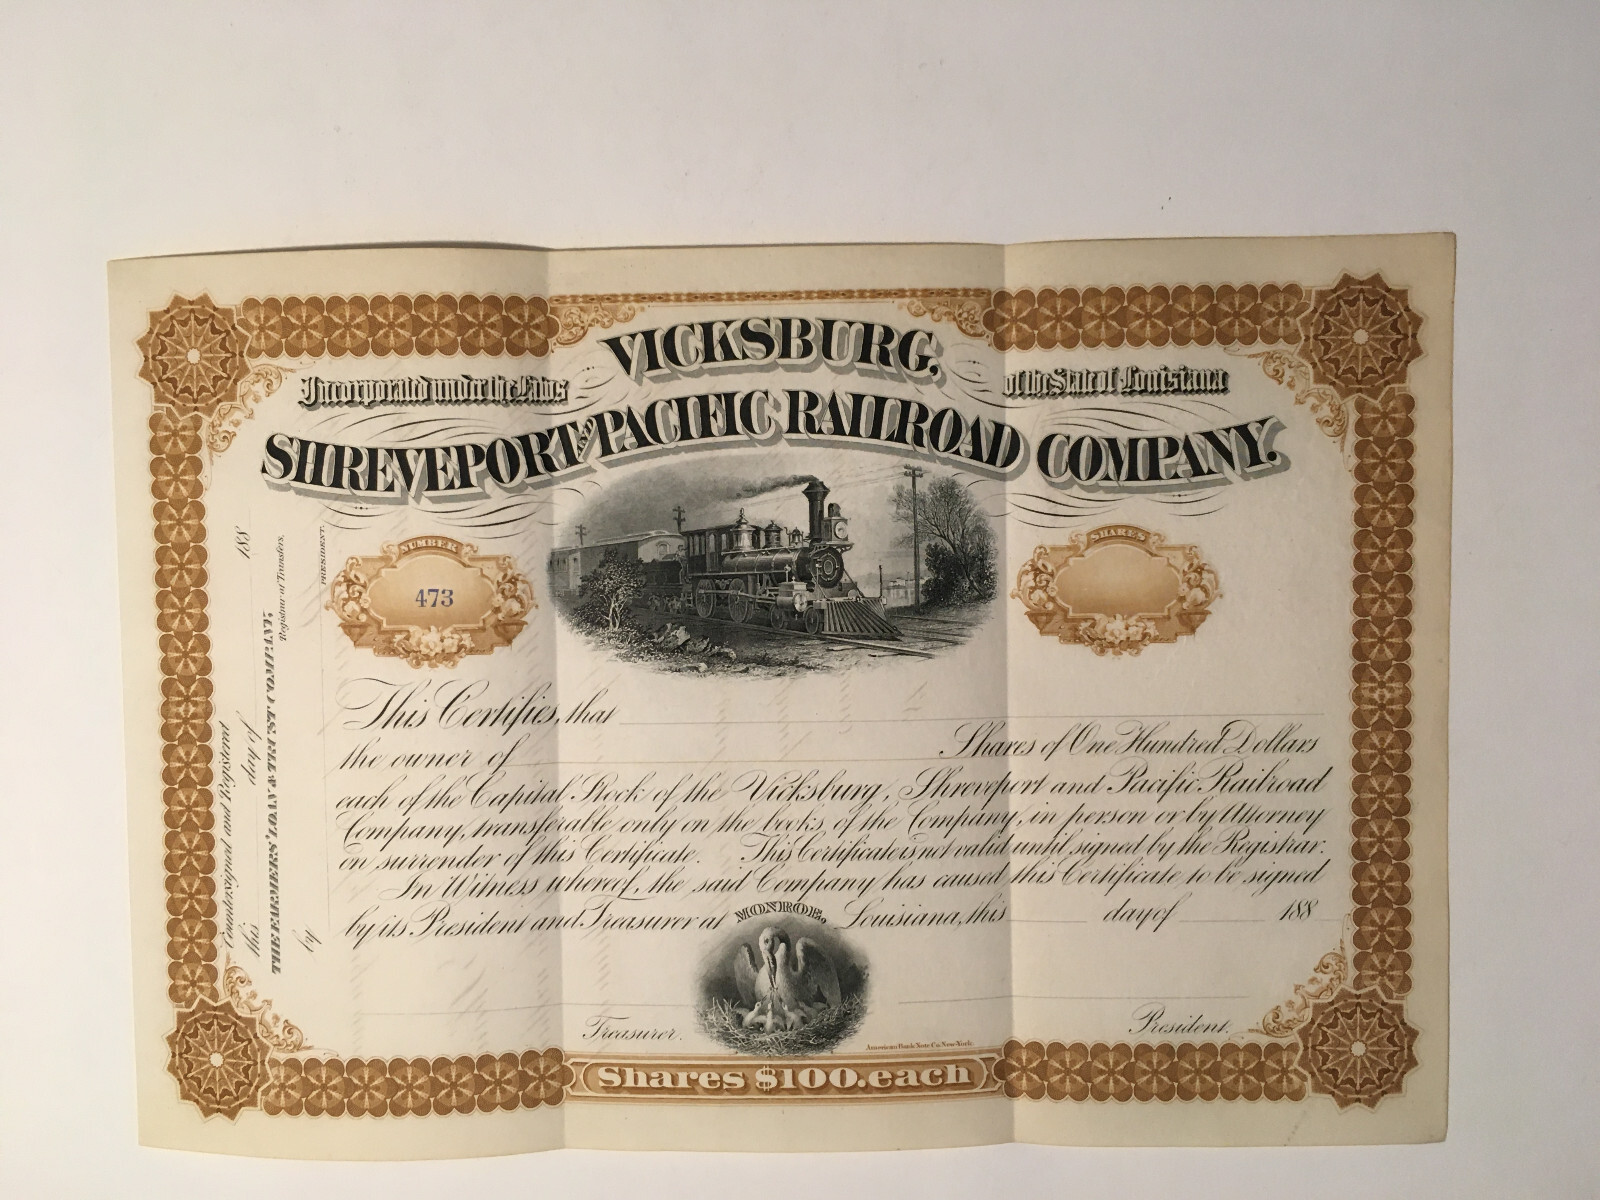 VICKSBURG,
Incorporated under the Laws of the State of Louisiana
SHREVEPORT AND PACIFIC RAILROAD COMPANY.
NUMBER
473
SHARES
This Certifies, that
the owner of Shares of One Hundred Dollars
each of the Capital Stock of the Vicksburg, Shreveport and Pacific Railroad
Company, transferable only on the books of the Company, in person or by Attorney
on surrender of this Certificate. This Certificate is not valid until signed by the Registrar.
In Witness whereof, the said Company has caused this Certificate to be signed
by its President and Treasurer at MONROE, Louisiana, this day of 188
Treasurer.
President.
American Bank Note Co. New-York.
Shares $100. each
Countersigned and Registered
this day of 188
THE FARMERS' LOAN & TRUST COMPANY,
Registrar of Transfers,
by PRESIDENT.